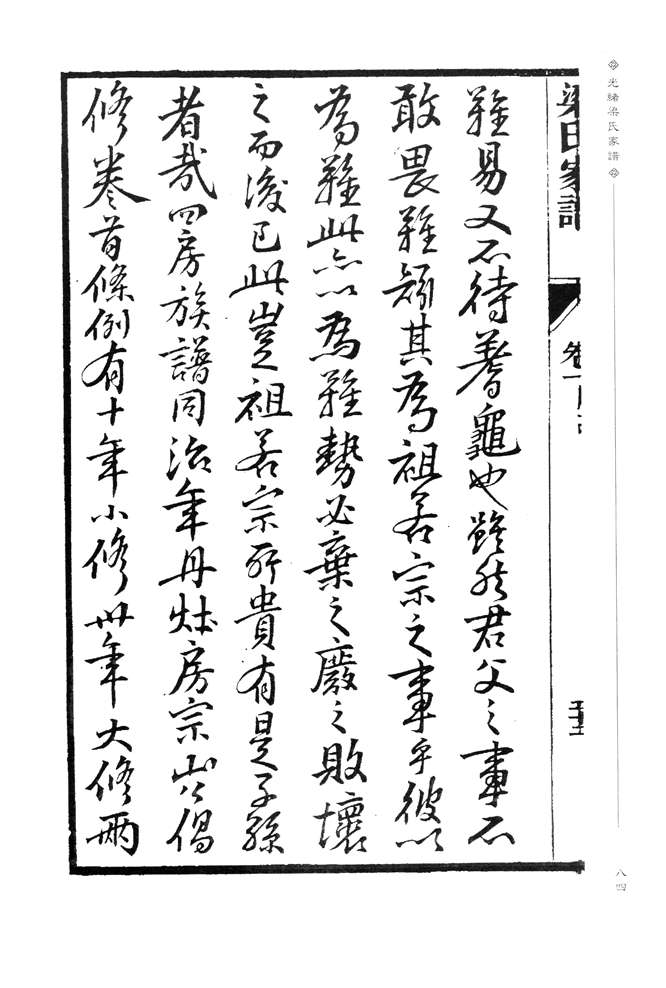 光緒梁氏家譜
八四
梁氏家譜
卷首
難易又不待蓍龜也雖然君父之事不
敢畏難矧其為祖若宗之事乎彼以
為難此亦以為難勢必棄之廢之敗壞
之而後已此豈祖若宗所貴有是子孫
者哉四房族譜同治年丹灶房宗山公倡
修卷首條例有十年小修卅年大修兩